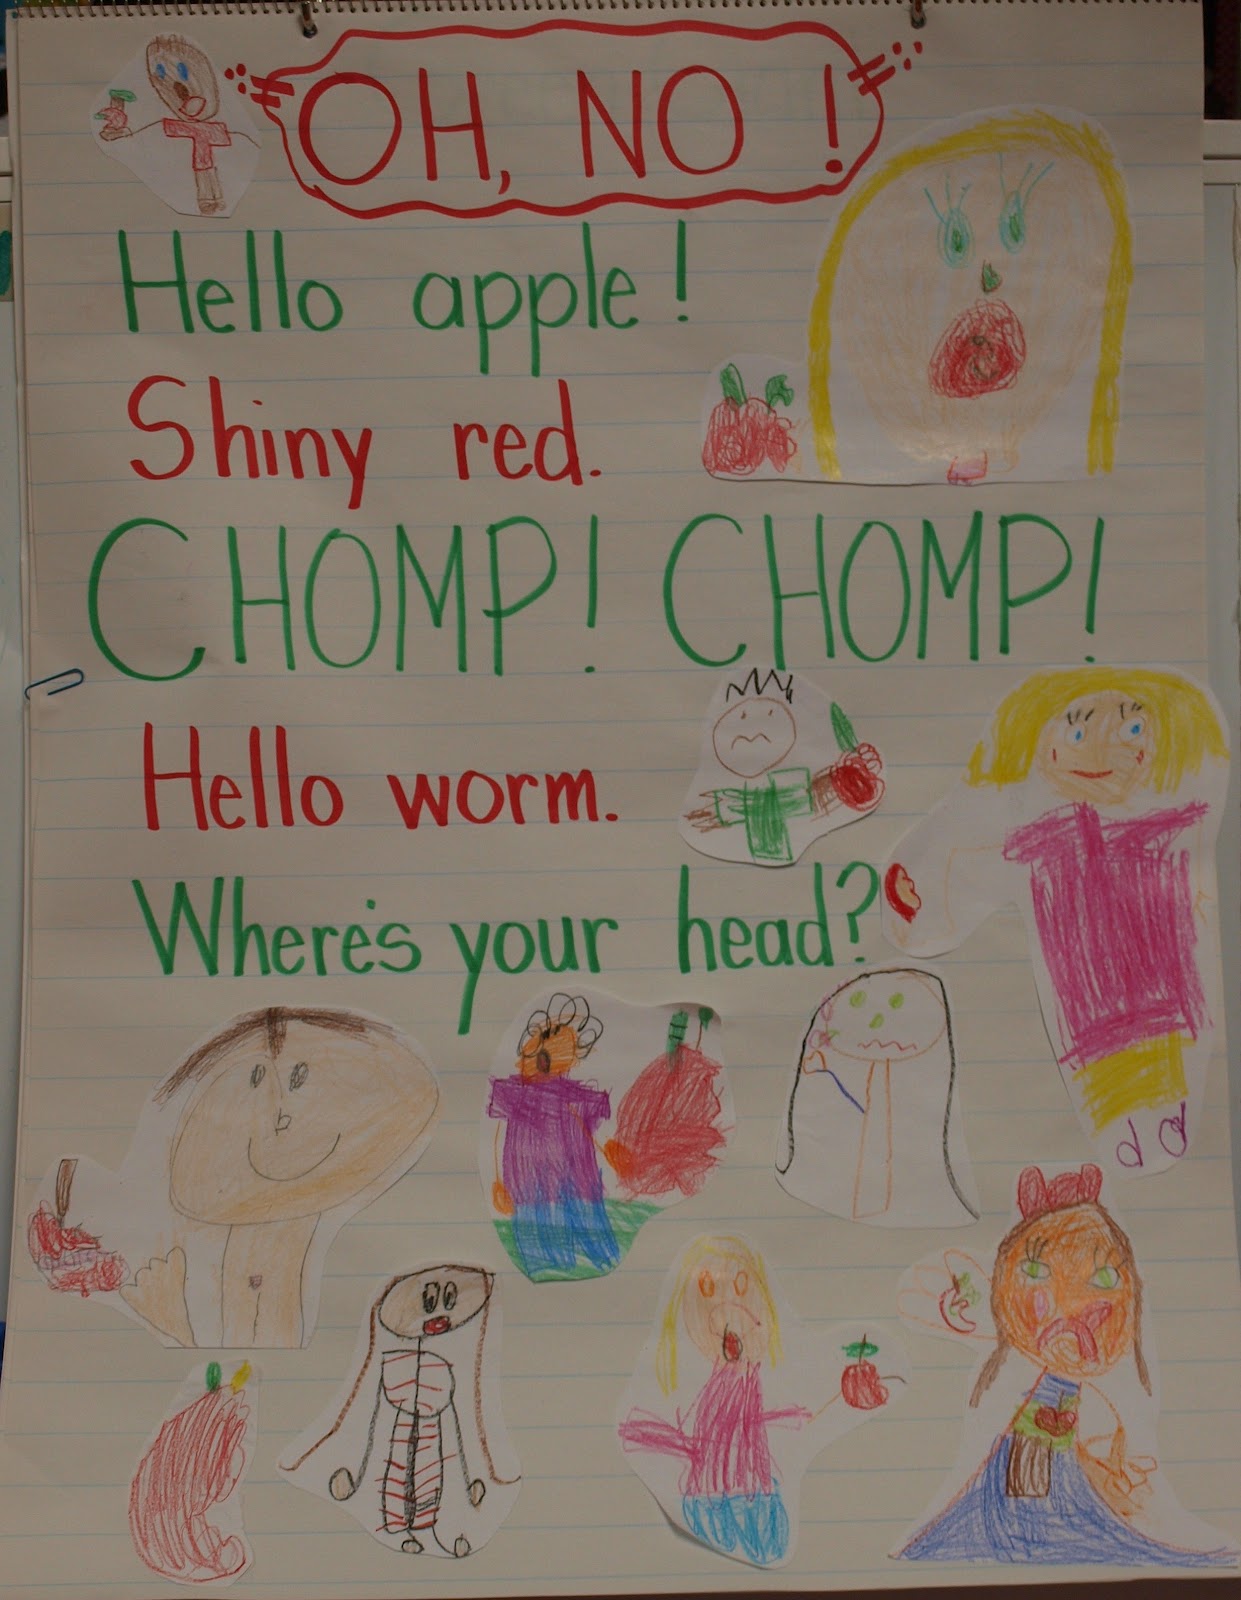 OH, NO!
Hello apple!
Shiny red.
CHOMP! CHOMP!
Hello worm.
Where's your head?